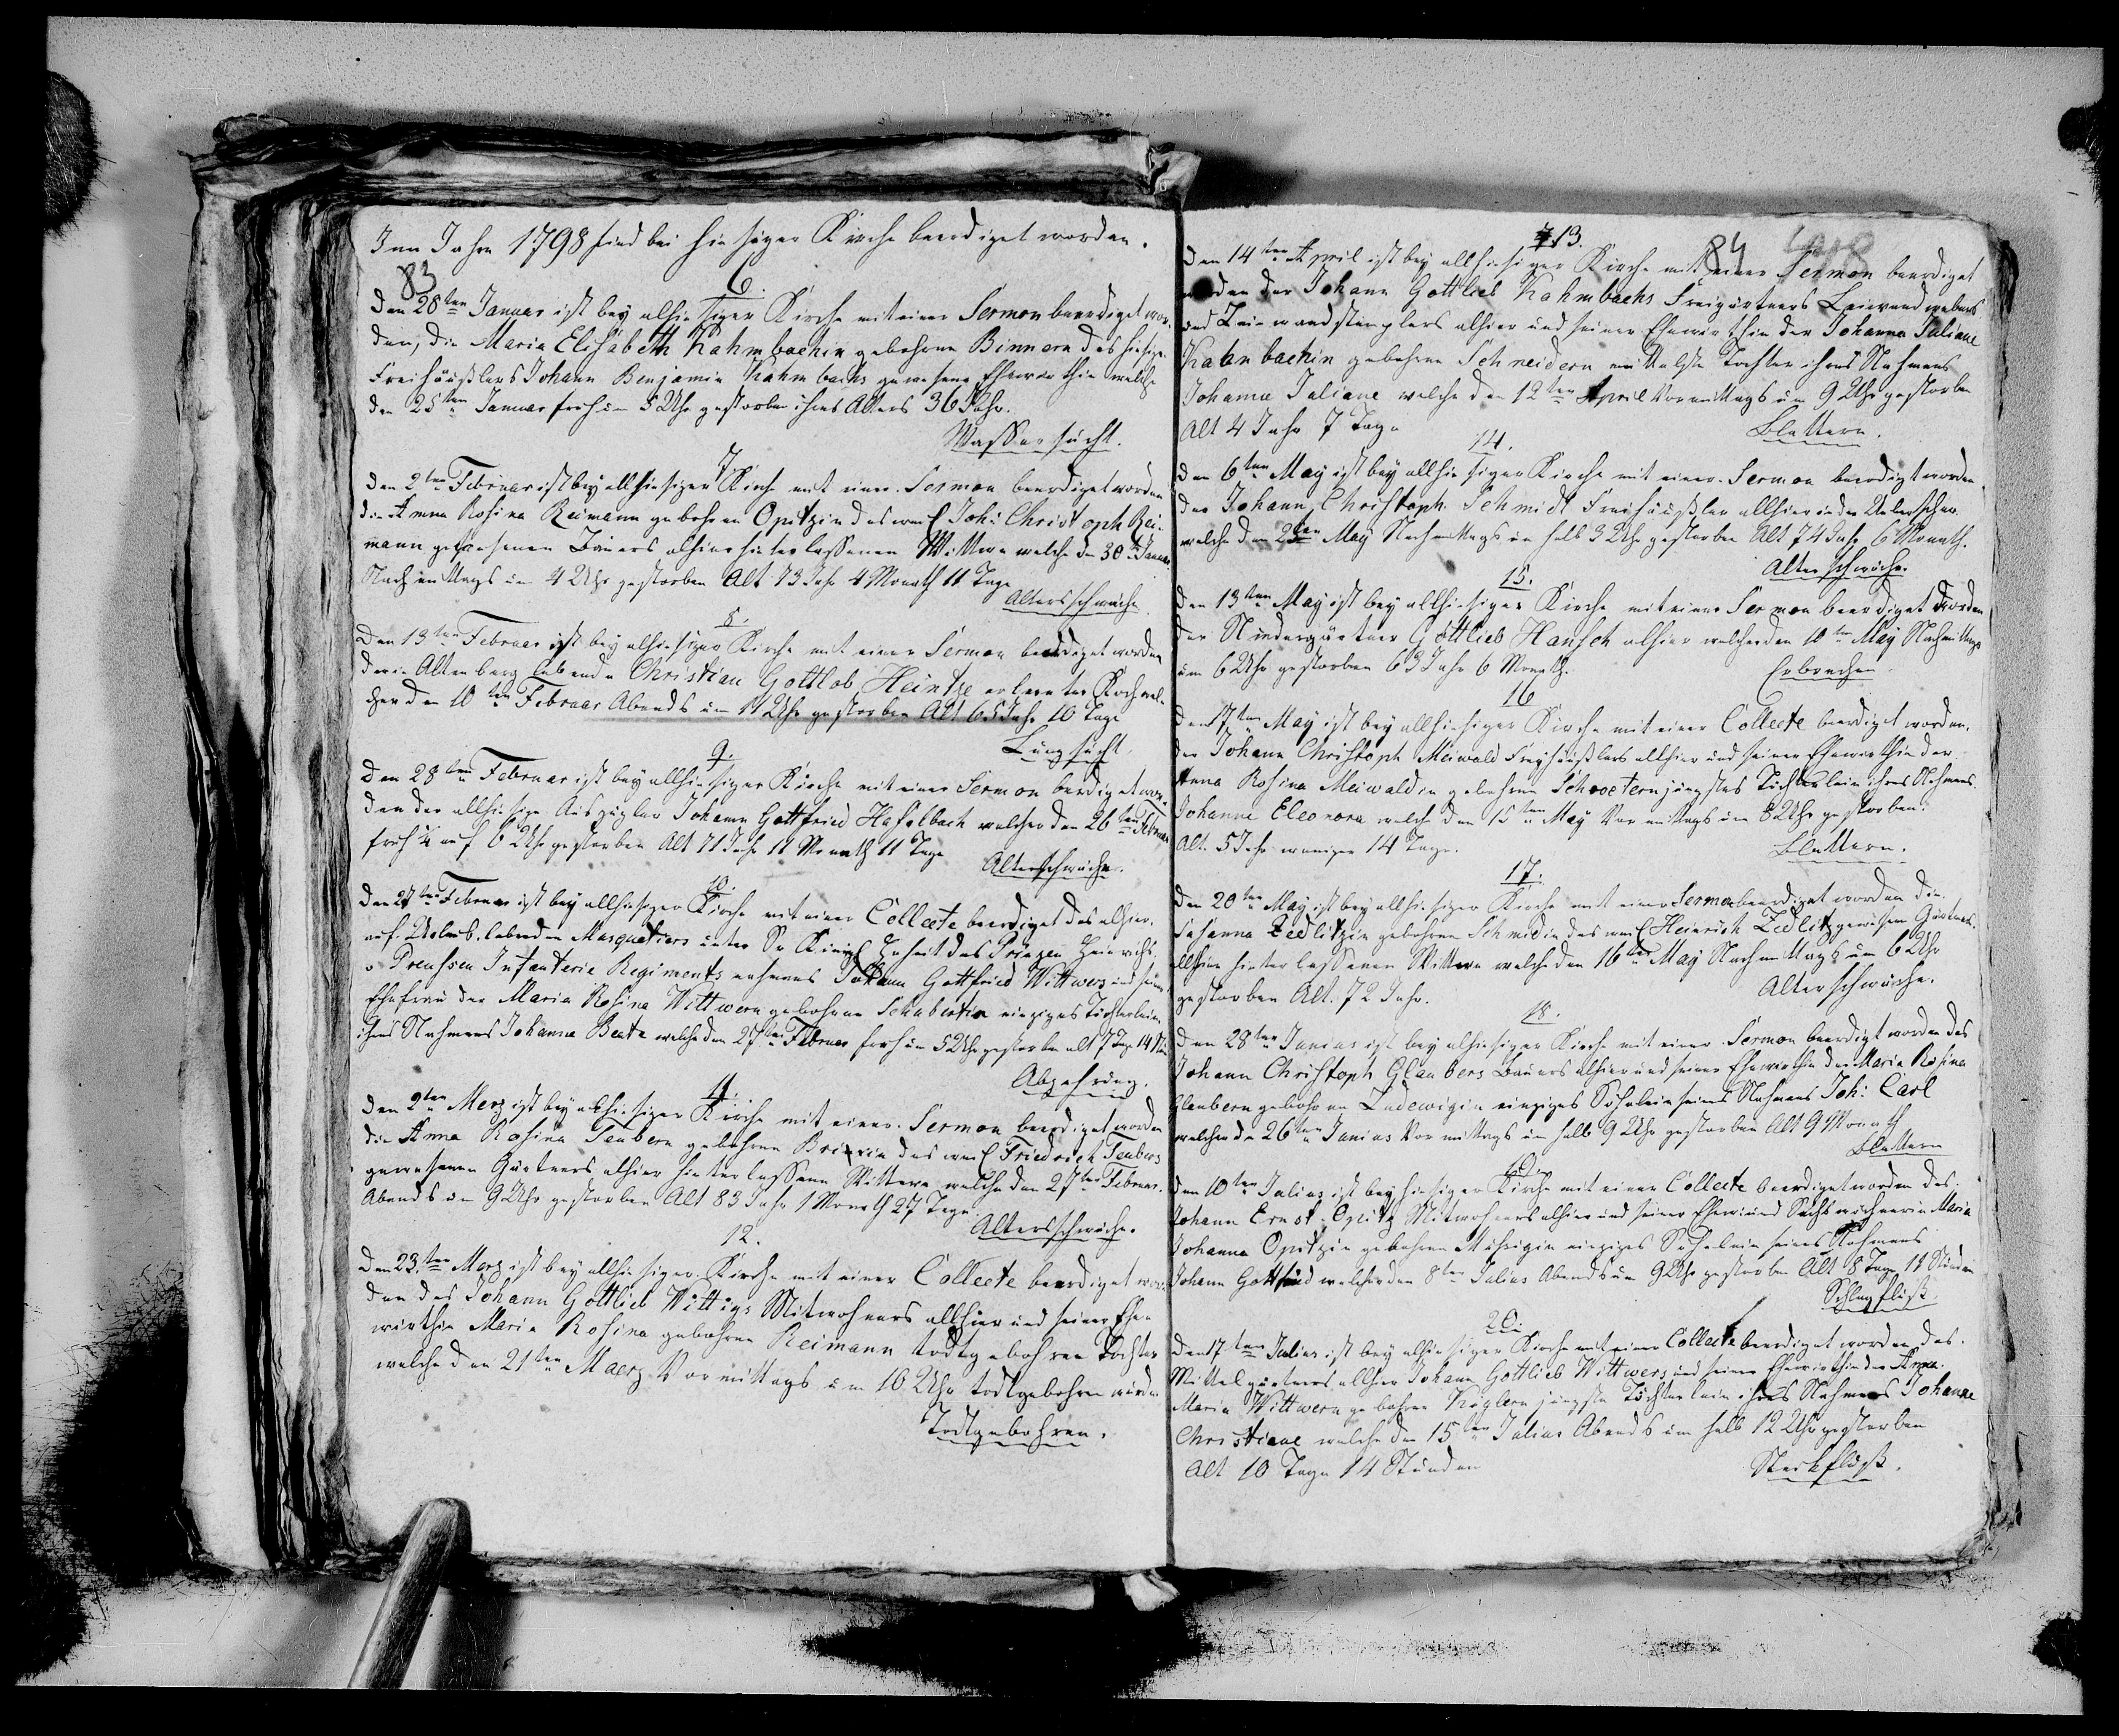 Im Jahre 1798 sind bei hiesiger Kirche beerdiget worden.
83
6.
Den 28ten Januar ist bey alhiesiger Kirche mit einer Sermon beerdiget wor-
den, die Maria Elisabeth Kahmbachin gebohrne Binnern des hiesigen
Freihäußlers Johann Benjamin Kahmbachs gewesene Ehewirthin welche
den 25ten Januar früh um 5 Uhr gestorben ihres Alters 36 Jahr.
Wassersucht.
7
Den 2ten Februar ist bey allhiesiger Kirche mit einer Sermon beerdiget worden
die Anna Rosina Reimann gebohrne Opitzin des weil Joh: Christoph Rei-
mann gewesenen Bauers alhier hinterlassenen Wittwe welche den 30ten Januar
Nachmittags um 4 Uhr gestorben Alt 73 Jahr 4 Monath 11 Tage
Altersschwäche.
8.
Den 13ten Februar ist bey alhiesiger Kirche mit einer Sermon beerdiget worden
der in Altenberg lebende Christian Gottlob Heintze erlernter Koch wel-
cher den 10ten Februar Abends um 11 Uhr gestorben Alt 65 Jahr 10 Tage
Lungsucht.
9.
Den 28ten Februar ist bey allhiesiger Kirche mit einer Sermon beerdiget wor-
den der allhiesige Auszügler Johann Gottfried Haselbach welcher den 26ten Februar
früh ¼ auf 6 Uhr gestorben Alt 71 Jahr 11 Monath 11 Tage
Altersschwäche.
10.
Den 27ten Februar ist bey allhiesiger Kirche mit einer Collecte beerdiget des alhier
auf Urlaub lebenden Musquetiers unter Sr Königl Hoheit des Prinzen Heinrichs
v Preussen Infanterie Regiments nahmens Johann Gottfried Wittwers und seiner
Ehefrau der Maria Rosina Wittwern gebohrne Schubertin einziges Töchterlein
ihres Nahmens Johanna Beata welche den 27ten Februar früh um 5 Uhr gestorben alt 7 Tage 14 Stun
Abzehrung.
11.
Den 2ten Merz ist bey alhiesiger Kirche mit einer Sermon beerdiget worden
die Anna Rosina Teubern gebohrne Brixin des weil Friedrich Teubers
gewesenen Gärtners alhier hinterlassene Wittwe welche den 27ten Februar
Abends um 9 Uhr gestorben Alt 83 Jahr 1 Monath 27 Tage.
Altersschwäche.
12.
Den 23ten Merz ist bey allhiesiger Kirche mit einer Collecte beerdiget wor-
den des Johann Gottlieb Wittigs Mitwohners allhier und seiner Ehe-
wirthin Maria Rosina gebohrne Reimann todtgebohrene Tochter
welche den 21ten Maerz Vormittags um 10 Uhr todtgebohren wurde
Todtgebohren.
13.
84
Den 14ten April ist bey allhiesiger Kirche mit einer Sermon beerdiget
worden der Johann Gottlieb Kahmbachs Freigärtners Leinwandwebers
und Leinwandstemplers alhier und seiner Ehewirthin der Johanna Juliane
Kahmbachin gebohrne Schneidern mittelste Tochter ihres Nahmens
Johanna Juliane welche den 12ten April Vormittags um 9 Uhr gestorben
Alt 4 Jahr 7 Tage
Blattern.
14.
Den 6ten May ist bey allhiesiger Kirche mit einer Sermon beerdigt worden
der Johann Christoph Schmidt Freihäußler allhier in der
welche den 2ten May Nachmittags um halb 3 Uhr gestorben Alt 74 Jahr 6 Monath.
Altersschwäche.
15.
Den 13ten May ist bey allhiesiger Kirche mit einer Sermon beerdiget worden
der Niedergärtner Gottlieb Hansch alhier welcher den 10ten May Nachmittags
um 6 Uhr gestorben 63 Jahr 6 Monath.
Erbrechen.
16
Den 17ten May ist bey allhiesiger Kirche mit einer Collecte beerdiget worden,
der Johann Christoph Meiwald Freyhäußlers allhier und seiner Ehewirthin der
Anna Rosina Meiwaldin gebohrne Schroetern jüngstes Töchterlein ihres Nahmens
Johanne Eleonora welche den 15ten May Vormittags um 8 Uhr gestorben.
Alt. 5 Jahr weniger 14 Tage.
Blattern.
17.
Den 20ten May ist bey allhiesiger Kirche mit einer Sermon beerdiget worden die
Susanna Zedlitzin gebohrne Schmidin des weil Heinrich Zedlitz gewesen Gärtners
allhier hinterlassenen Wittwe welche den 16ten May Nachmittags um 6 Uhr
gestorben Alt. 72 Jahr.
Altersschwäche.
18.
Den 28ten Junius ist bey alhiesiger Kirche mit einer Sermon beerdigt worden des
Johann Christoph Glaubers Bauers alhier und seiner Ehewirthin der Maria Rosina
Glaubern gebohrne Ludewigin einziges Söhnlein seines Nahmens Joh: Carl
welcher den 26ten Junius Vormittags um halb 9 Uhr gestorben Alt 9 Monath
Blattern
19.
Den 10ten Julius ist bey hiesiger Kirche mit einer Collecte beerdiget worden des
Johann Ernst Opitz Mitwohners alhier und seiner Ehew: und Sechswöchnerin Maria
Johanna Opitzin gebohrne einziges Söhnlein seines Nahmens
Johann Gottfried welcher den 8ten Julius Abends um 9 Uhr gestorben Alt 8 Tage 11 Stunden
Schlagfluß.
20.
Den 17ten Julius ist bey alhiesiger Kirche mit einer Collecte beerdiget worden, des
Mittelgärtners allhier Johann Gottlieb Wittwers und seiner Ehewirthin der Anna
Maria Wittwern gebohrne Küglern jüngste Töchterlein ihres Nahmens Johanne
Christiane welche den 15ten Julius Abends um halb 12 Uhr gestorben
Alt 10 Tage 14 Stunden
Steckfluß.